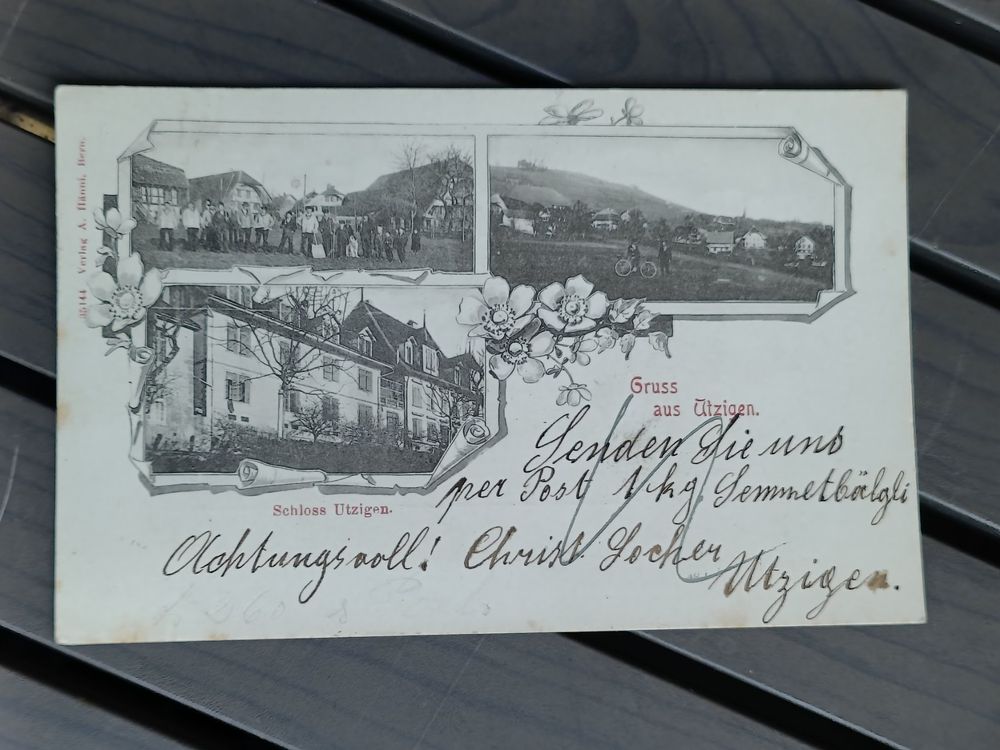 35144 Verlag A. Hänni, Bern.
Gruss
aus Utzigen.
Schloss Utzigen.
Senden Sie uns
per Post 1 kg. Semmetbälgli
Achtungsvoll! Christ Locher
Utzigen.